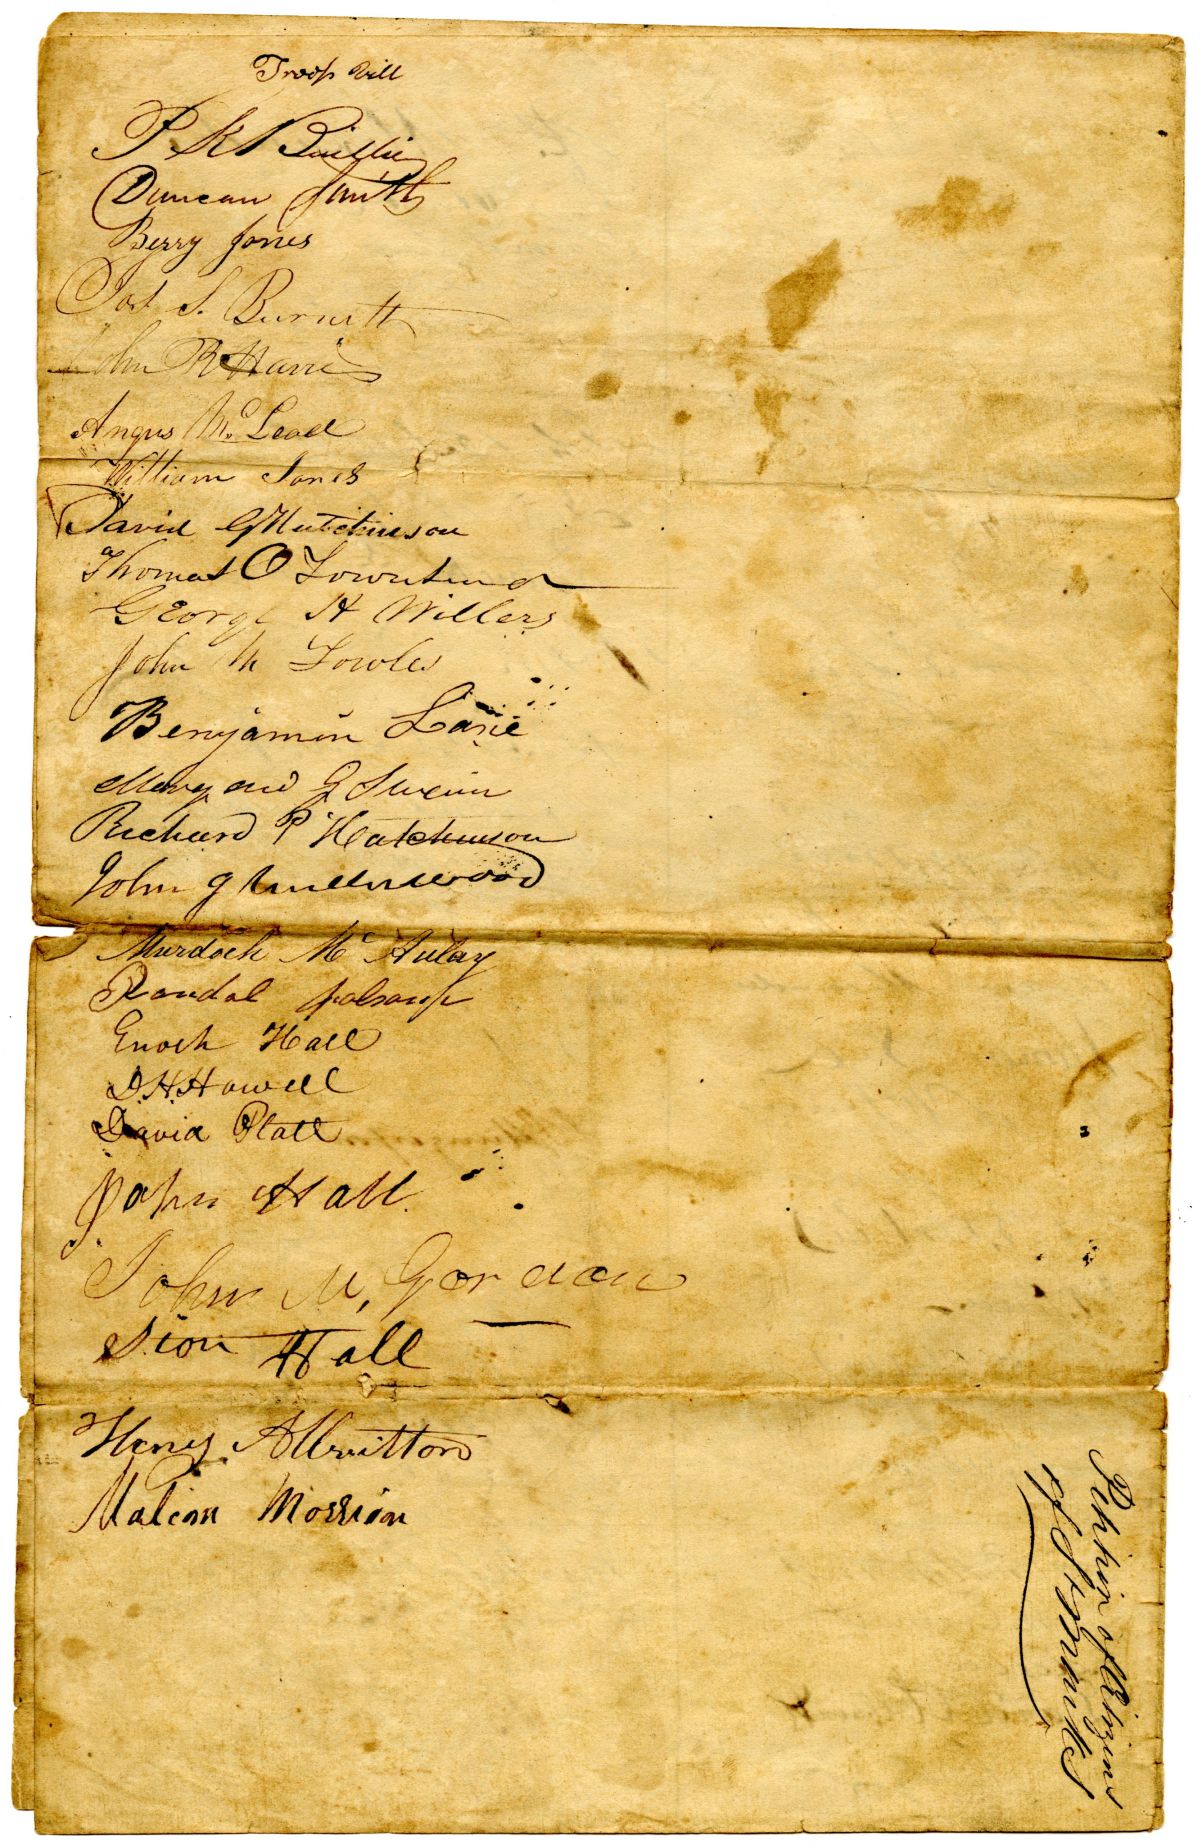 Troop vill
P K Baillie
Duncan Smith
Berry Jones
S. Burnett
John R Harris
Angus Mc Leod
William Jones
David G Hutchinson
Thomas O Townsend
George H Willers
John M Towles
Benjamin Lane
G Swain
Richard P Hutchinson
John J Underwood
Murdoch Mc Aulay
Randal
Enoch Hall
D. H. Howell
David Platt
John Hall
John M, Gordon
Sion Hall
Henry Allbritton
Malcom Morrison
of Citizens
of